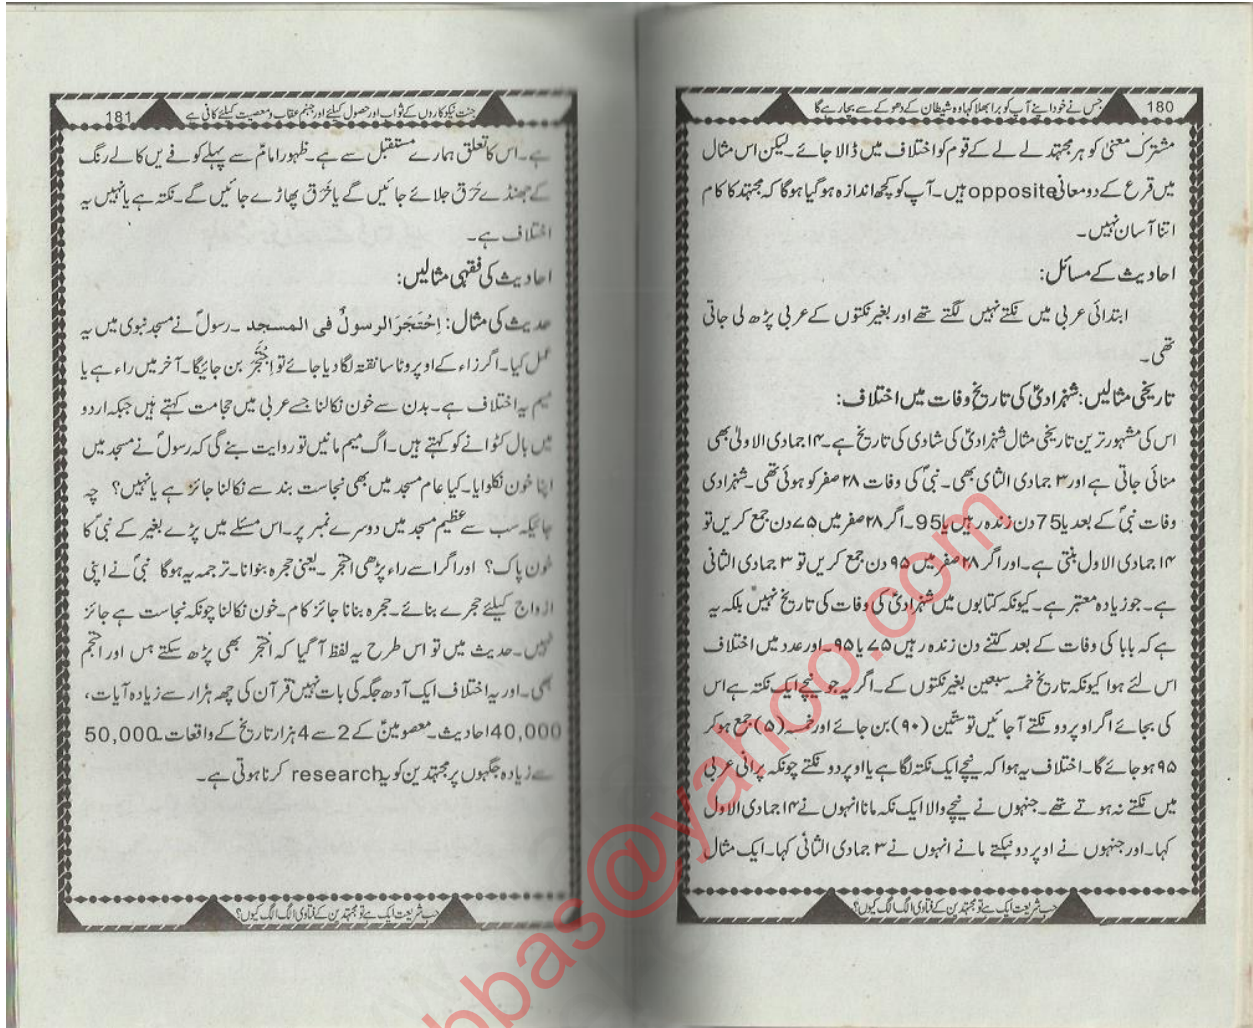 180
جس نے خود اپنے آپ کو برا بھلا کہا وہ شیطان کے دھوکے سے بچا رہے گا
مشترک معنی کو ہر مجتہد لے لے کے قوم کو اختلاف میں ڈالا جائے۔ لیکن اس مثال
میں قرع کے دو معانی opposite ہیں۔ آپ کو کچھ اندازہ ہو گیا ہوگا کہ مجتہد کا کام
اتنا آسان نہیں۔
احادیث کے مسائل:
ابتدائی عربی میں نکتے نہیں لگتے تھے اور بغیر نکتوں کے عربی پڑھ لی جاتی
تھی۔
تاریخی مثالیں: شہزادیؑ کی تاریخ وفات میں اختلاف:
اس کی مشہور ترین تاریخی مثال شہزادیؑ کی شادی کی تاریخ ہے۔ ۱۴ جمادی الاولیٰ بھی
منائی جاتی ہے اور ۳ جمادی الثای بھی۔ نبیؐ کی وفات ۲۸ صفر کو ہوئی تھی۔ شہزادی
وفات نبیؐ کے بعد یا 75 دن زندہ رہیں یا 95۔ اگر ۲۸ صفر میں ۷۵ دن جمع کریں تو
۱۴ جمادی الاول بنتی ہے۔ اور اگر ۲۸ صفر میں ۹۵ دن جمع کریں تو ۳ جمادی الثانی
ہے۔ جو زیادہ معتبر ہے۔ کیونکہ کتابوں میں شہزادیؑ کی وفات کی تاریخ نہیں بلکہ یہ
ہے کہ بابا کی وفات کے بعد کتنے دن زندہ رہیں ۷۵ یا ۹۵۔ اور عدد میں اختلاف
اس لئے ہوا کیونکہ تاریخ خمسہ سبعین بغیر نکتوں کے۔ اگر یہ جو نیچے ایک نکتہ ہے اس
کی بجائے اگر اوپر دو نکتے آجائیں تو ستّین (۹۰) بن جائے اور خمسہ (۵) جمع ہو کر
۹۵ ہو جائے گا۔ اختلاف یہ ہوا کہ نیچے ایک نکتہ لگا ہے یا اوپر دو نکتے چونکہ پرانی عربی
میں نکتے نہ ہوتے تھے۔ جنہوں نے نیچے والا ایک نکہ مانا انہوں نے ۱۴ جمادی الاول
کہا۔ اور جنہوں نے اوپر دو نکتے مانے انہوں نے ۳ جمادی الثانی کہا۔ ایک مثال
جب شریعت ایک ہے تو مجتہدین کے فتاوی الگ الگ کیوں؟
181
جنت نیکوکاروں کے ثواب اور حصول کیلئے اور جہنم عقاب و معصیت کیلئے کافی ہے
ہے۔ اس کا تعلق ہمارے مستقبل سے ہے۔ ظہور امامؑ سے پہلے کوفے میں کالے رنگ
کے جھنڈے حَرَق جلائے جائیں گے یا خَرَق پھاڑے جائیں گے۔ نکتہ ہے یا نہیں یہ
اختلاف ہے۔
احادیث کی فقہی مثالیں:
حدیث کی مثال: اِحْتَجَرَ الرسولٌ فی المسجد۔ رسولؐ نے مسجد نبوی میں یہ
عمل کیا۔ اگر زاء کے اوپر وٹا سا نقتہ لگا دیا جائے تو بن جائیگا۔ آخر میں راء ہے یا
میم یہ اختلاف ہے۔ بدن سے خون نکالنا جسے عربی میں حجامت کہتے ہیں جبکہ اردو
میں بال کٹوانے کو کہتے ہیں۔ اگ میم مانیں تو روایت بنے گی کہ رسولؐ نے مسجد میں
اپنا خون نکلوایا۔ کیا عام مسجد میں بھی نجاست بند سے نکالنا جائز ہے یا نہیں؟ چہ
جائیکہ سب سے عظیم مسجد میں دوسرے نمبر پر۔ اس مسئلے میں پڑے بغیر کے نبیؐ کا
خون پاک؟ اور اگر اسے راء پڑھی احتجر۔ یعنی حجرہ بنوانا۔ ترجمہ یہ ہوگا نبیؐ نے اپنی
ازواج کیلئے حجرے بنائے۔ حجرہ بنانا جائز کام۔ خون نکالنا چونکہ نجاست ہے جائز
نہیں۔ حدیث میں تو اس طرح یہ لفظ آگیا کہ احتجر بھی پڑھ سکتے ہس اور احتجم
بھی۔ اور یہ اختلاف ایک آدھ جگہ کی بات نہیں قرآن کی چھ ہزار سے زیادہ آیات،
40,000 احادیث۔ معصومینؑ کے 2 سے 4 ہزار تاریخ کے واقعات۔ 50,000
سے زیادہ جگہوں پر مجتہدین کو یہ research کرنا ہوتی ہے۔
جب شریعت ایک ہے تو مجتہدین کے فتاوی الگ الگ کیوں؟
bbas@yahoo.com